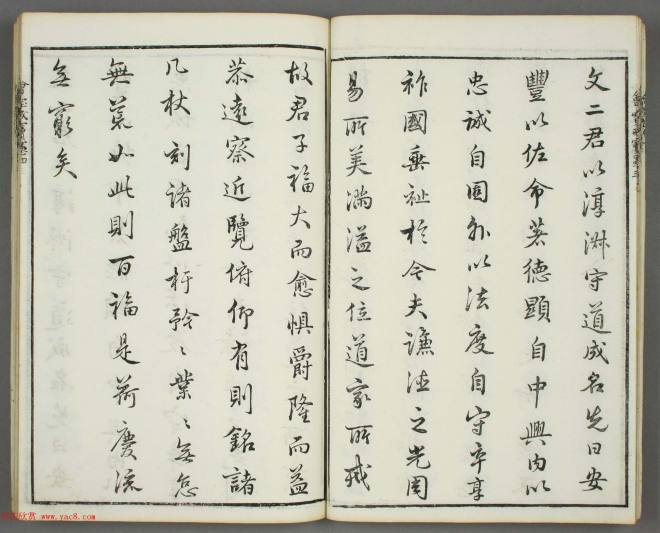 文二君以淳淑守道成名先日安
豐以佐命著德顯自中興内以
忠誠自固外以法度自守卒享
祚國垂祉於今夫謙德之光周
易所美滿溢之位道家所戒
故君子福大而愈懼爵隆而益
恭遠察近覽俯仰有則銘諸
几杖刻諸盤杅矜〻業〻無怠
無荒如此則百福是荷慶流
無窮矣
www.yac8.com